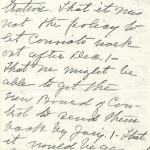 That it was
not the policy to
let convicts work
out after Dec. 1-
That he might be
able to get the
Board of Con-
trol to send them
back by Jany. 1. That
it would be